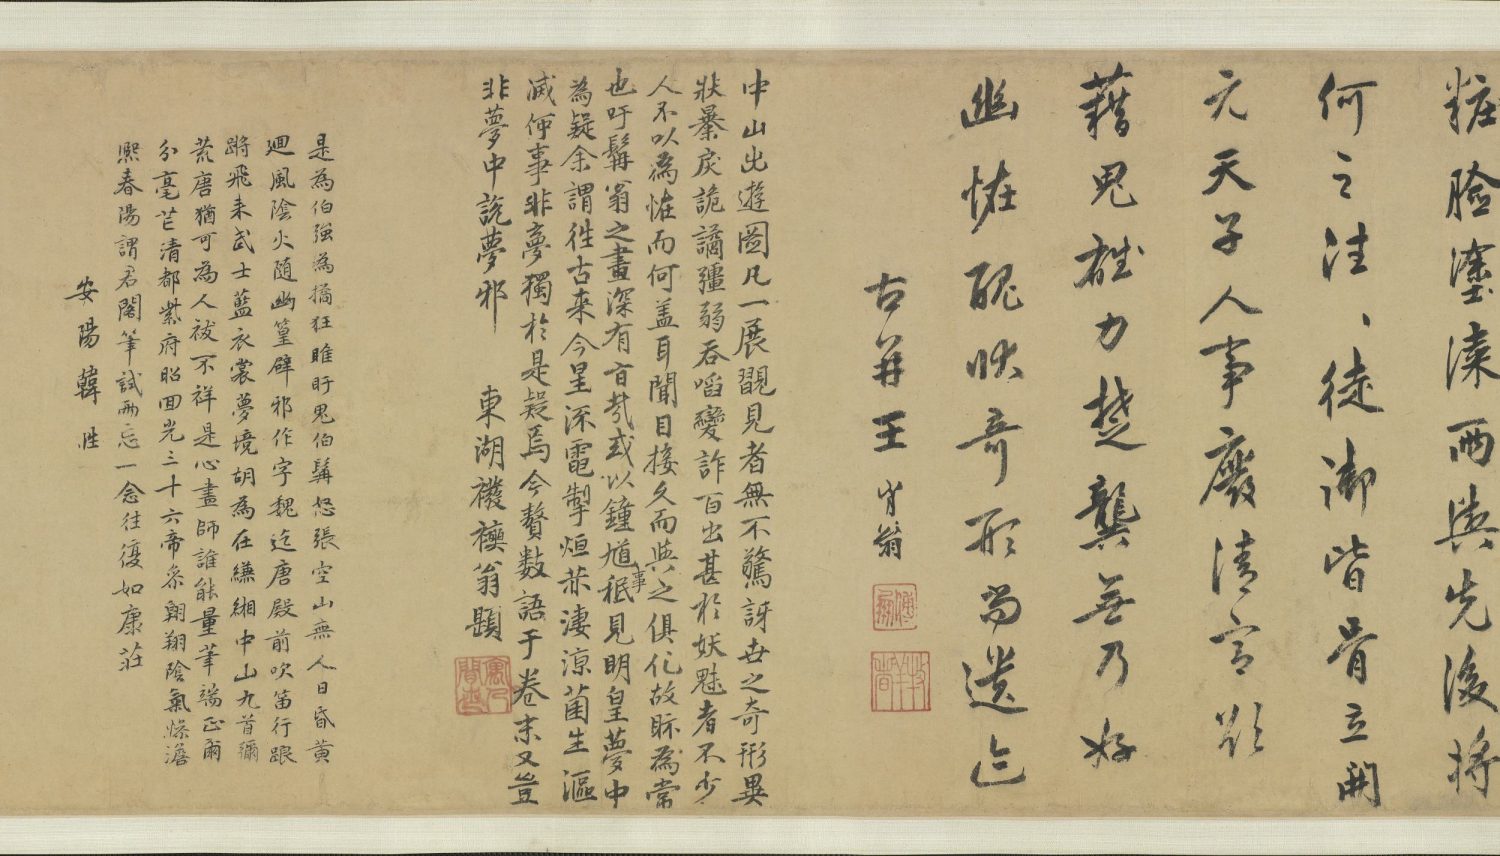 粧臉塗漆兩輿先後將
何之洼〻徒御皆骨立開
元天子人事廢清宮欲
藉鬼雄力楚龔無乃好
幽怪醜狀奇形尚遺跡
古并王肖翁
中山出遊圖凡一展翫見者無不驚訝世之奇形異
狀暴戾詭譎彊弱吞啗變詐百出甚於妖魅者不少
人不以為怪而何盖耳聞目接久而與之俱化故眎為常
也吁髯翁之畫深有旨哉或以鍾馗秖見明皇夢中
事
為疑余謂徃古來今星流電掣烜赫淒涼菌生漚
滅何事非夢獨於是疑焉今贅数語于卷末又豈
非夢中說夢邪 東湖襏襫翁題
是為伯强為獝狂睢盱鬼伯髯怒張空山無人日昏黄
廻風陰火随幽篁辟邪作字魏迄唐殿前吹笛行踉
蹡飛来武士藍衣裳夢境胡為在縑緗中山九首彌
荒唐猶可為人祓不祥是心畫師誰能量筆端正爾
分毫芒清都紫府昭回光三十六帝參翱翔陰氣慘澹
熙春陽謂君閣筆試兩忘一念往復如康莊
安陽韓性